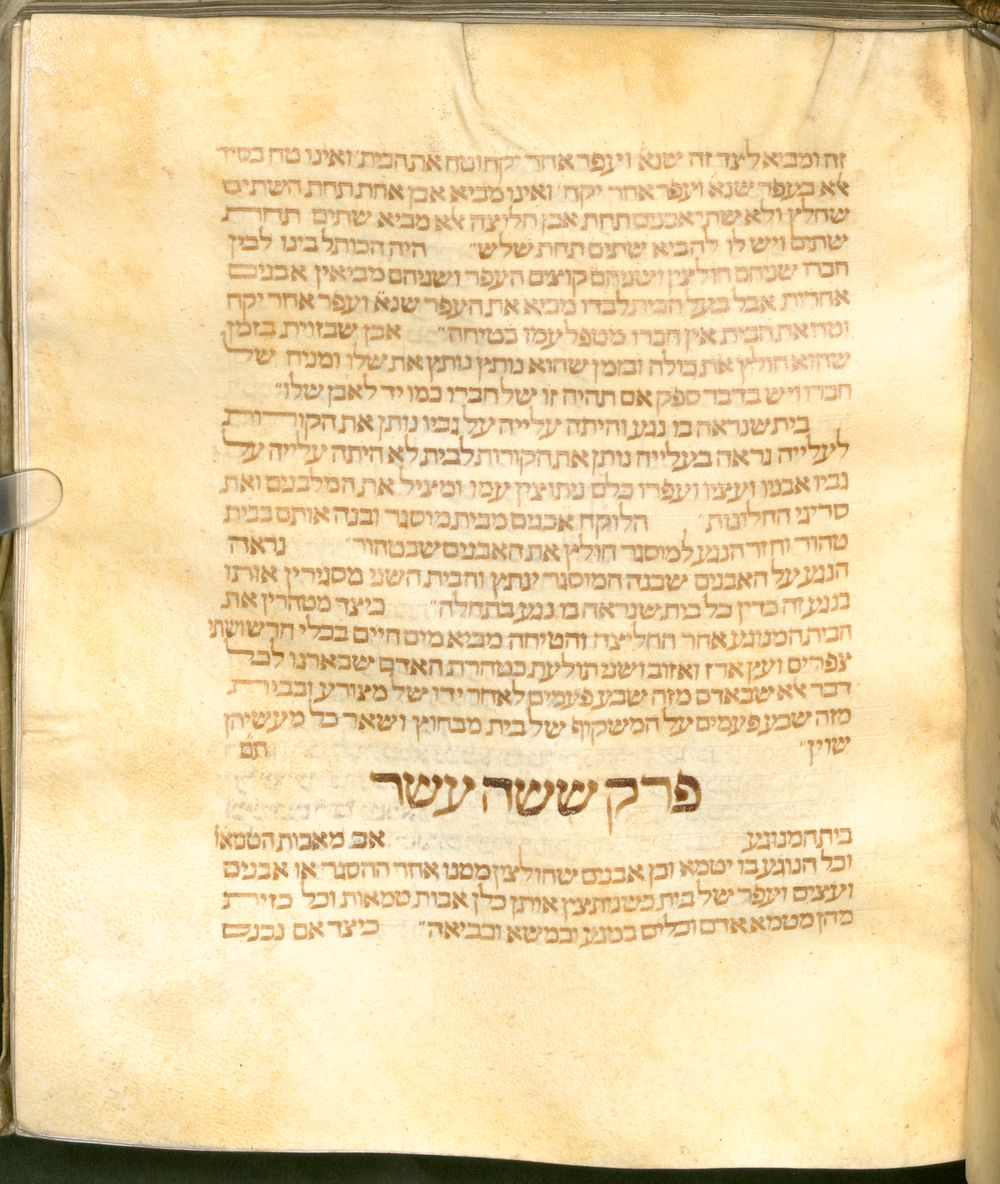 זה ומביא לצד זה שנא׳ ועפר אחר יקח וטח את הבית׳ ואינו טח בסיד
לא בעפר שנא׳ ועפר אחר יקח׳ ואינו מביא אבן אחת תחת השתים
שחלץ ולא שתי אבנים תחת אבן חלוצה לא מביא שתים תחת
שתים ויש לו להביא שתים תחת שלש״ היה הכותל בינו לבין
חברו שניהם חולצין ושניהם קוצים העפר ושניהם מביאין אבנים
אחרות אבל בעל הבית לבדו מביא את העפר שנא׳ ועפר אחר יקח
וטח את הבית אין חברו מטפל עמו בטיחה״ אבן שבזוית בזמן
שהוא חולץ את כולה ובזמן שהוא נותץ נותץ את שלו ומניח של
חברו ויש בדבר ספק אם תהיה זו של חברו כמו יד לאבן שלו״
בית שנראה בו נגע והיתה עלייה על גביו נותן את הקורות
לעלייה נראה בעלייה נותן את הקורות לבית לא היתה עלייה על
גביו אבניו ועציו ועפרו כלם נתוצין עמו ומציל את המלבנים ואת
סריגי החלונות״ הלוקח אבנים מבית מוסגר ובנה אותם בבית
טהור וחזר הנגע למוסגר חולץ את האבנים שבטהור״ נראה
הנגע על האבנים שבנה המוסגר ינתץ והבית השני מסגירין אותו
בנגע זה כדין כל בית שנראה בו נגע בתחלה״ כיצד מטהרין את
הבית המנוגע אחר החליצה והטיחה מביא מים חיים בכלי חרש ושתי
צפרים ועץ ארז ואזוב ושני תולעת כטהרת האדם שבארנו לכל
דבר לא שבאדם מזה שבע פעמים לאחר ידו של מצורע ובבית
מזה שבע פעמים על המשקוף של בית מבחוץ ושאר כל מעשיהן
שוין״ תם
פרק ששה עשר
בית המנוגע אב מאבות הטמאו
וכל הנוגע בו יטמא וכן אבנים שחולצין ממנו אחר ההסגר או אבנים
ועצים ועפר של בית כשנותצין אותן כלן אבות טמאות וכל כזית
מהן מטמא אדם וכלים במגע ובמשא ובביאה״ כיצד אם נכנס